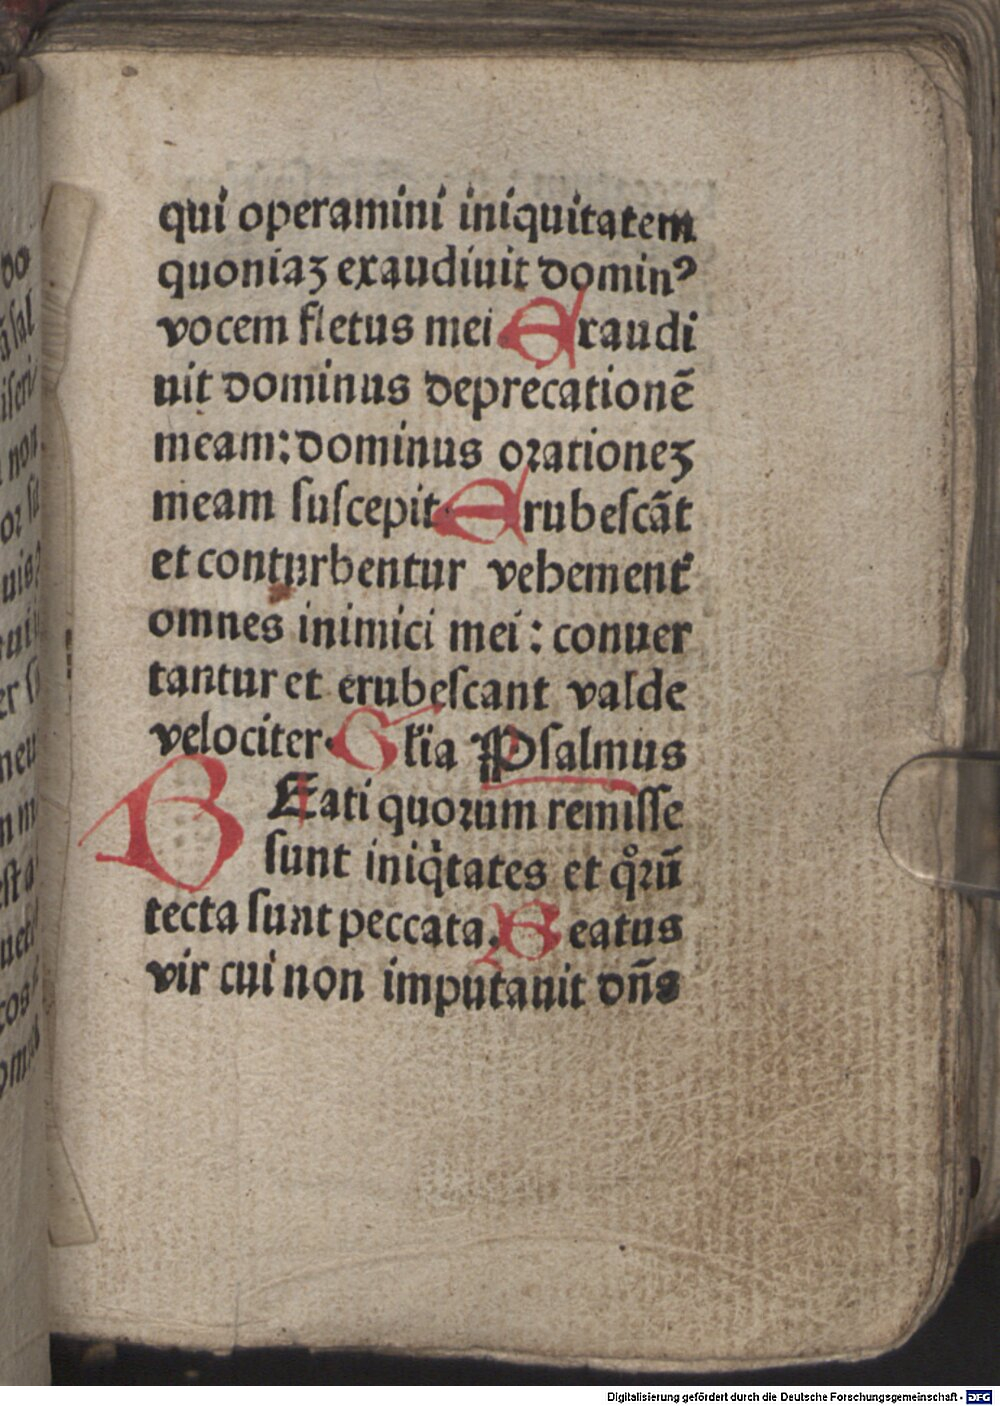 qui operamini iniquitatem
quoniaꝫ exaudiuit domin⁹
vocem fletus mei. Exaudi
uit dominus deprecationē
meam: dominus orationeꝫ
meam suscepit. Erubescāt
et conturbentur vehement᷑
omnes inimici mei: conuer
tantur et erubescant valde
velociter. Glia Psalmus
BEati quorum remisse
sunt iniq̇tates et qͦrū
tecta sunt peccata. Beatus
vir cui non imputauit dn̄s
Digitalisierung gefördert durch die Deutsche Forschungsgemeinschaft - DFG